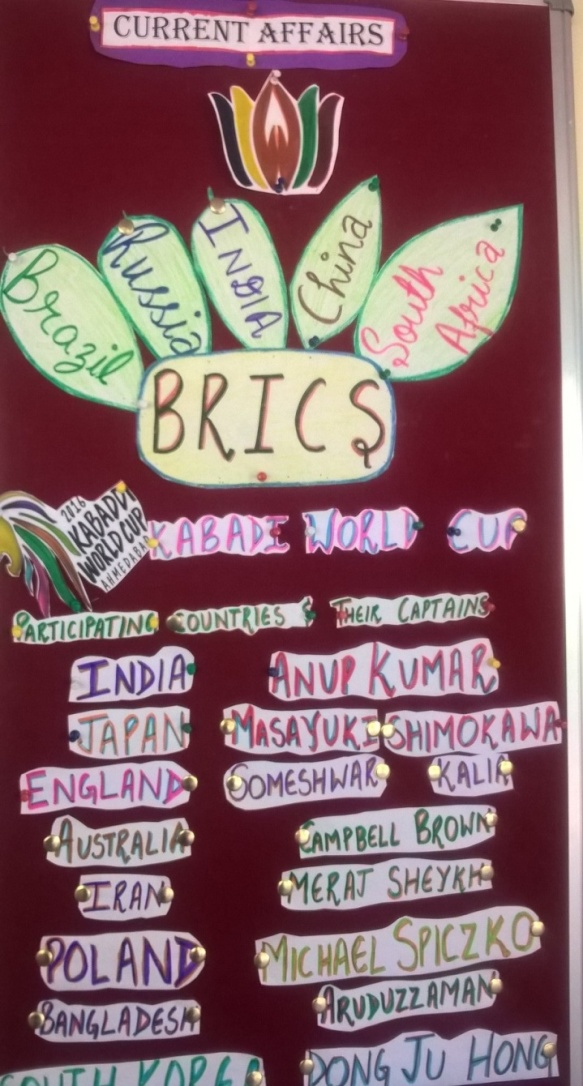 CURRENT AFFAIRS
Brazil Russia INDIA China South Africa
BRICS
2016
KABADDI
WORLD CUP
AHMEDABA
KABADI WORLD CUP
PARTICIPATING COUNTRIES & THEIR CAPTAINS
INDIA ANUP KUMAR
JAPAN MASAYUKI SHIMOKAWA
ENGLAND SOMESHWAR KALIA
AUSTRALIA CAMPBELL BROWN
IRAN MERAJ SHEYKH
POLAND MICHAEL SPICZKO
BANGLADESH ARUDUZZAMAN
SOUTH KOREA DONG JU HONG